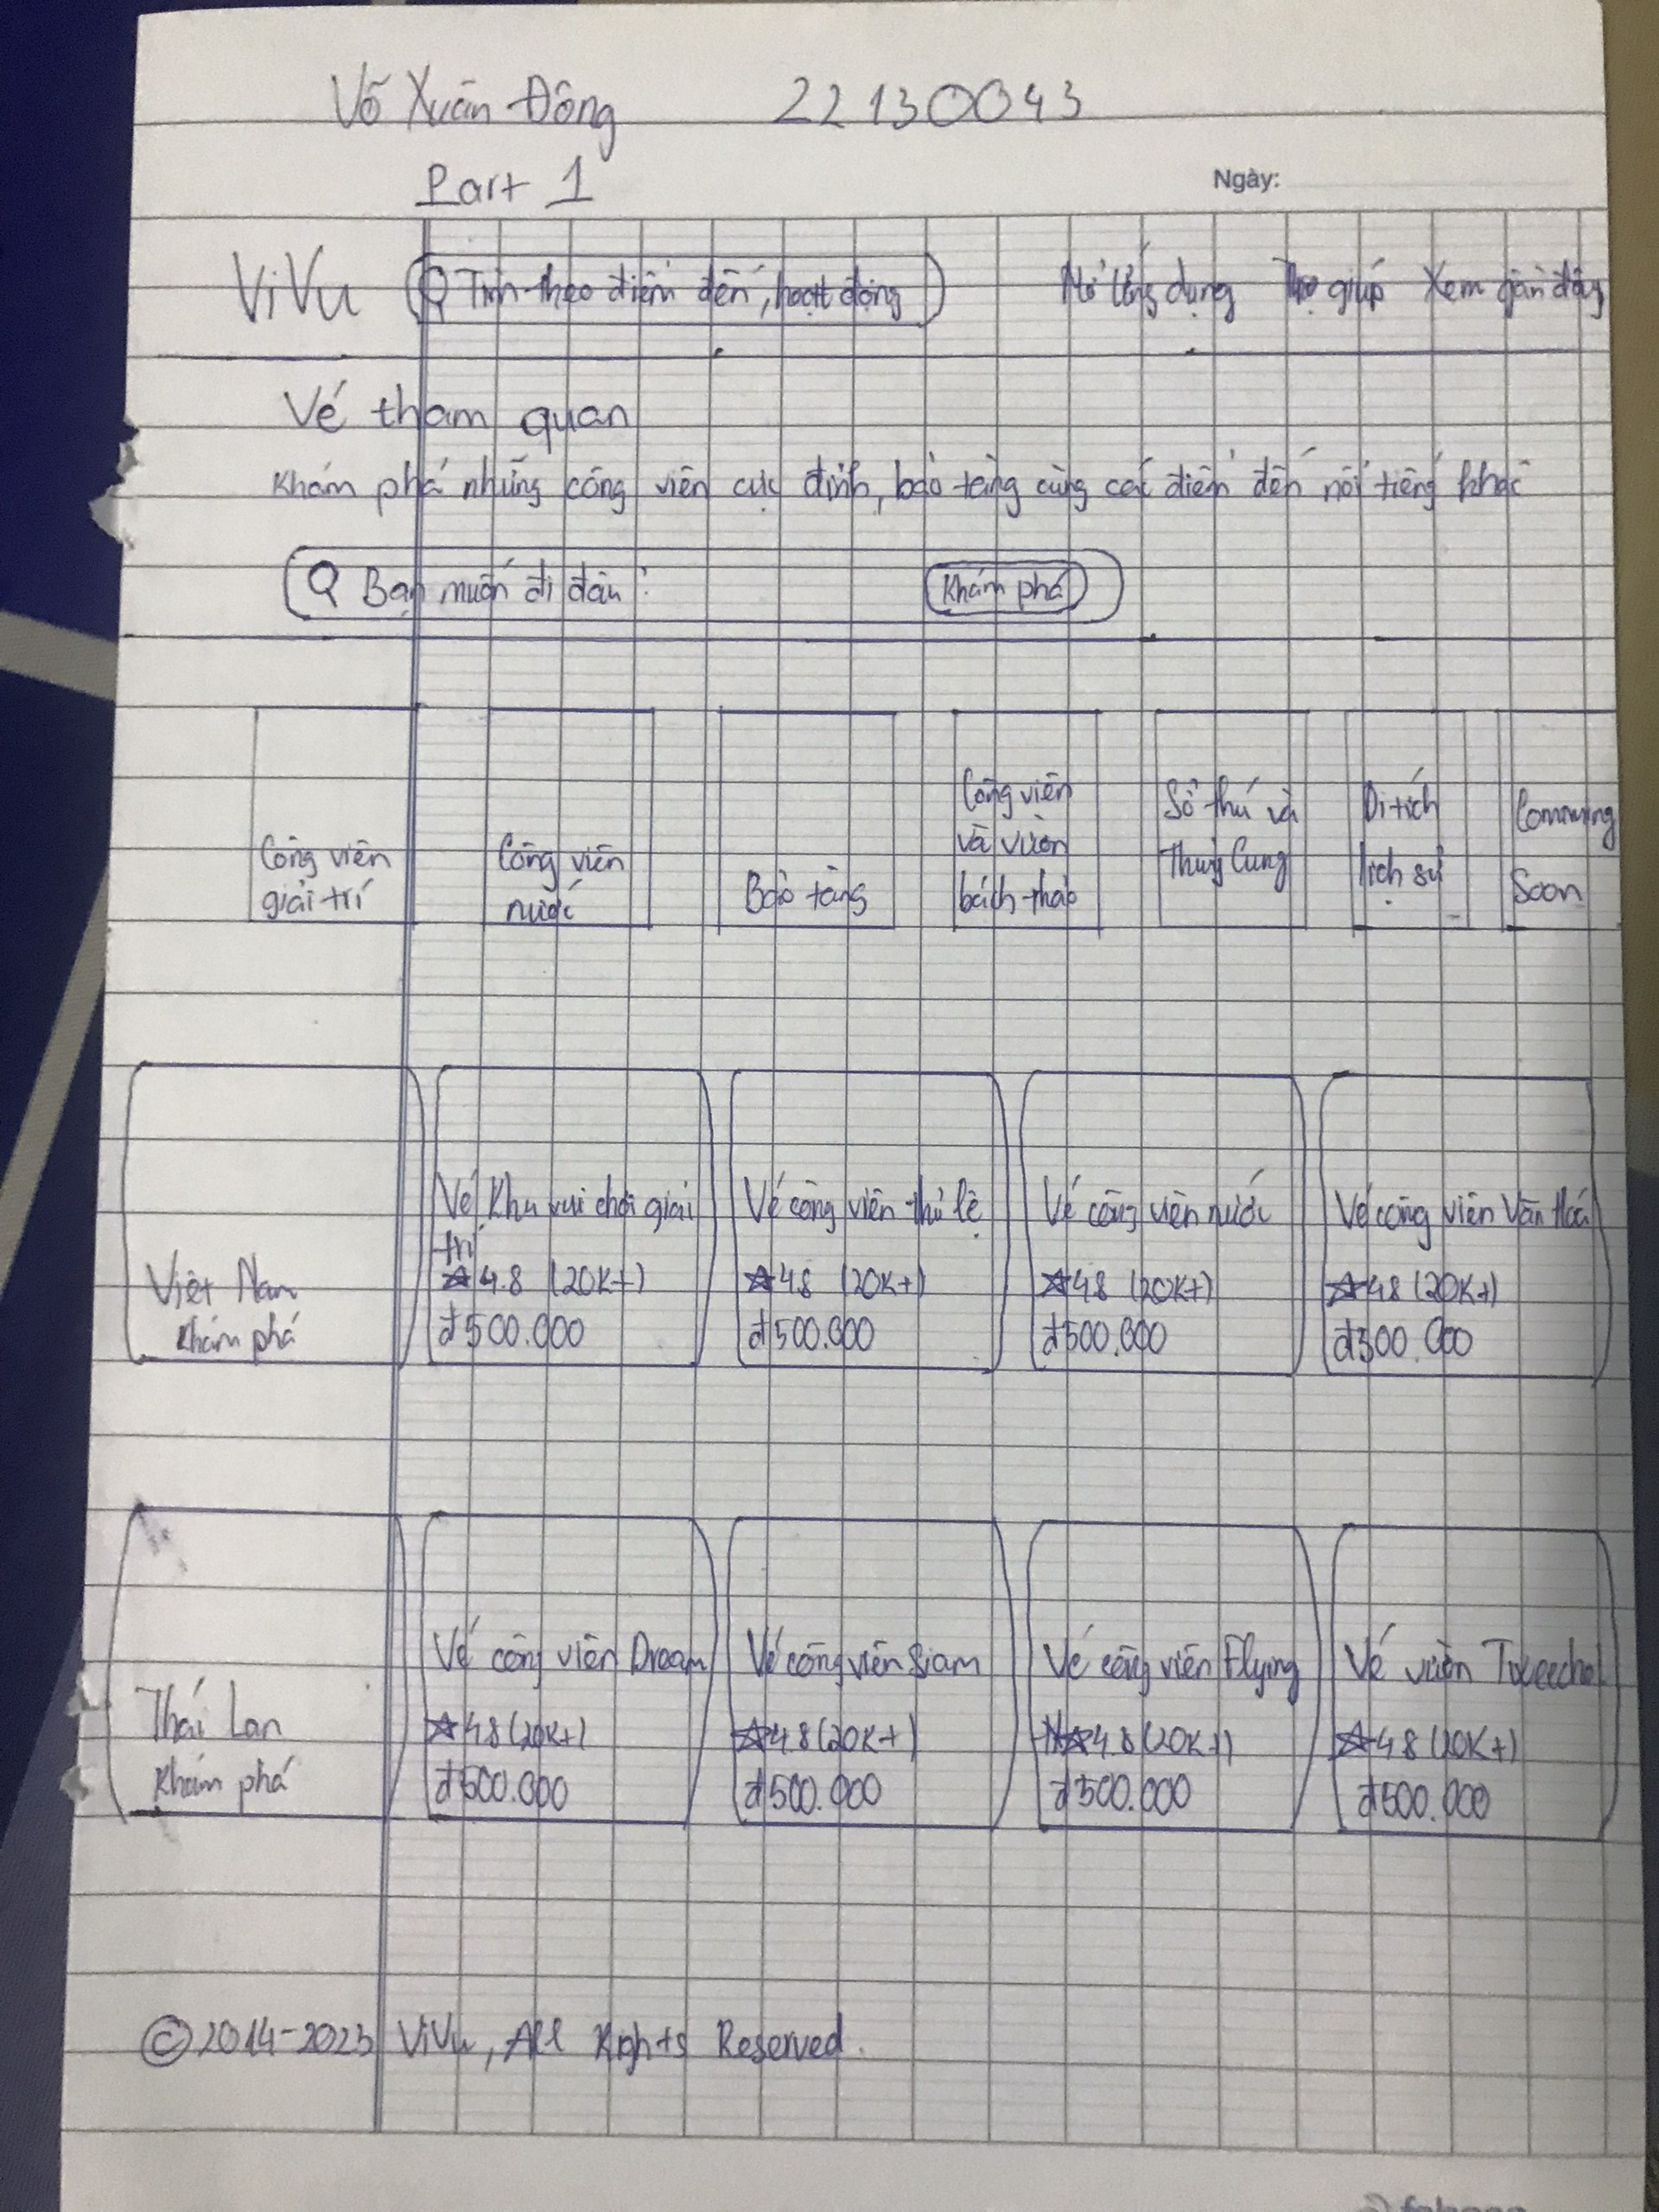 Võ Xuân Đông 22130043
Part 1
Ngày:
ViVu Tìm theo điểm đến, hoạt động Mở ứng dụng Trợ giúp Xem gần đây
Vé tham quan
Khám phá những công viên cực đỉnh, bảo tàng cùng các điểm đến nổi tiếng khác
Bạn muốn đi đâu? Khám phá
Công viên
giải trí
Công viên
nước
Bảo tàng
Công viên
và vườn
bách thảo
Sở thú và
Thuỷ Cung
Di tích
lịch sử
Comming
Soon
Việt Nam
Khám phá
Vé Khu vui chơi giải
trí
☆4.8 (20K+)
đ500.000
Vé công viên thủ lệ
☆4.8 (20K+)
đ500.000
Vé công viên nước
☆4.8 (20K+)
đ500.000
Vé công viên Văn Hoá
☆4.8 (20K+)
đ500.000
Thái Lan
Khám phá
Vé công viên Dream
☆4.8 (20K+)
đ500.000
Vé công viên Siam
☆4.8 (20K+)
đ500.000
Vé công viên Flying
☆4.8 (20K+)
đ500.000
Vé vườn
☆4.8 (20K+)
đ500.000
©2014-2023 ViVu, All Rights Reserved.